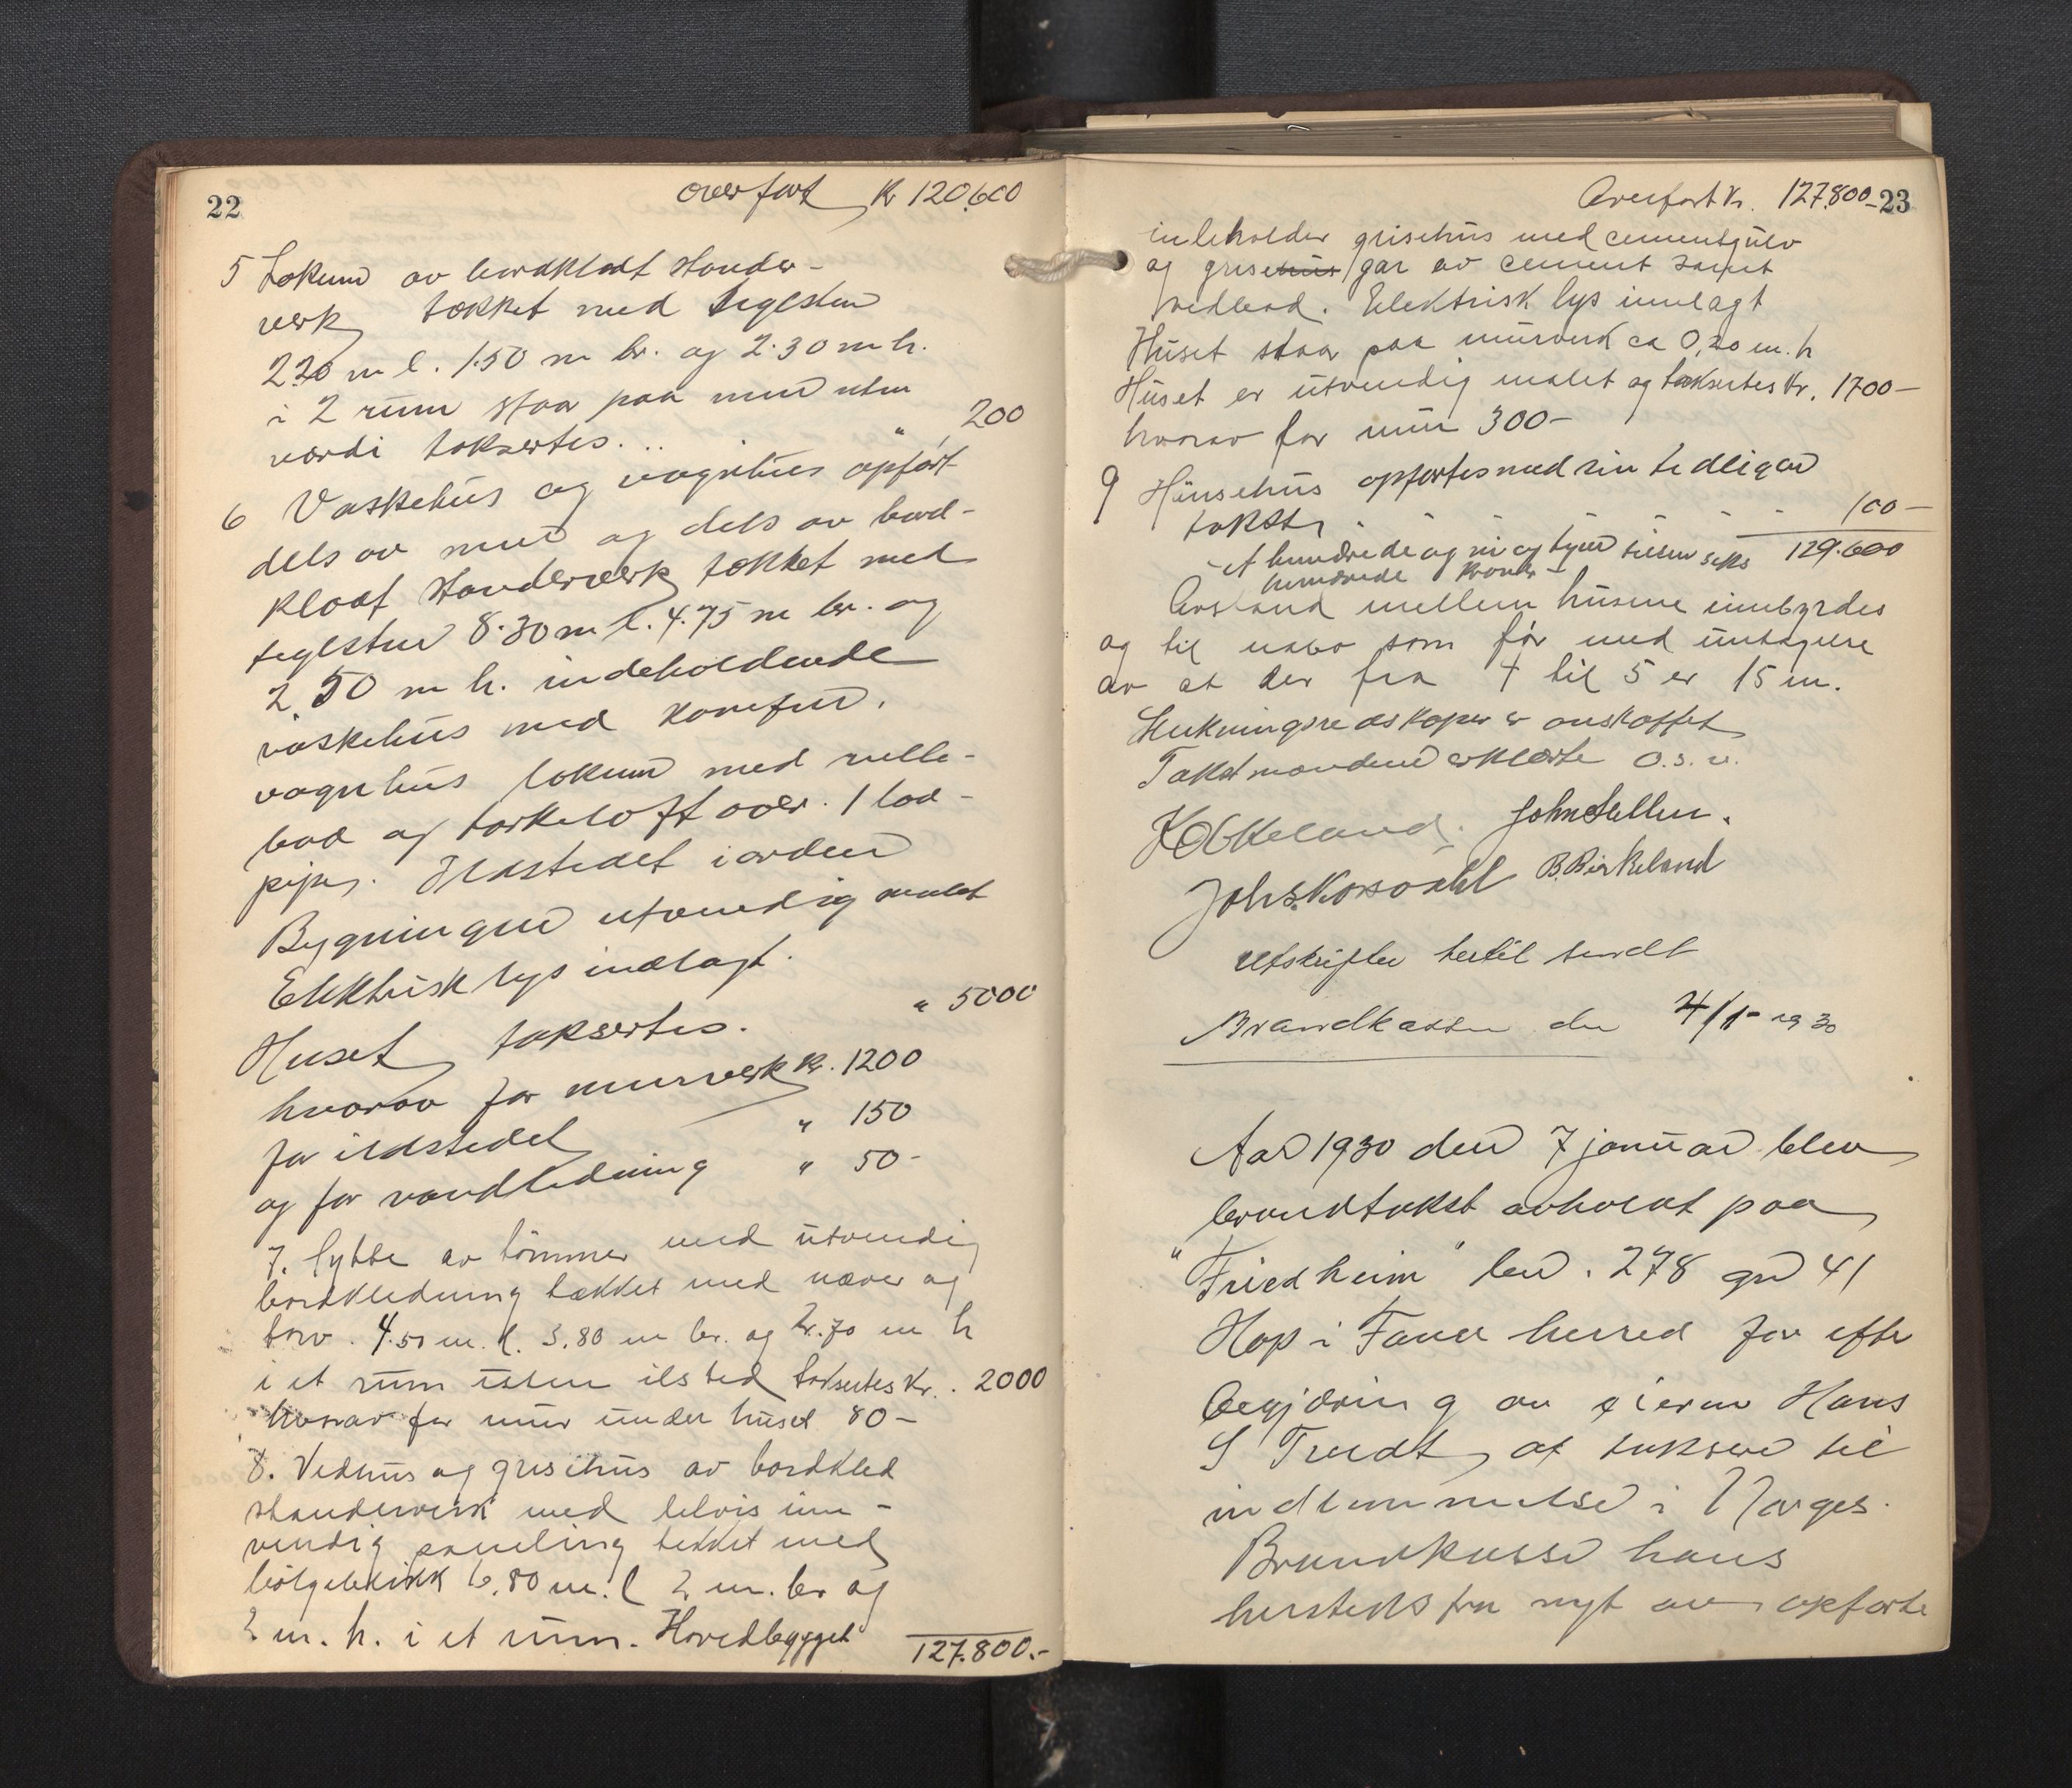 22
overført Kr 120,600
5 Lokum av bordklædt Stander-
verk tækket med teglsten
2.20 m l. 1.50 m br. og 2.30 m h.
i 2 rum staar paa mur uten
værdi taksertes. . . " 200
6 Vaskehus og vognhus opført
dels av mur og dels av bord-
klædt Standerverk tækket med
teglsten 8.30 m l. 4.75 m br. og
2.50 m h. indeholdende
vaskehus med komfur.
vognhus lokum med rulle-
bod og tørkeloft over. 1 lod-
pipe. Ildstedet i orden
Bygningen utvendig malet
Elektrisk lys indlagt.
Huset taksertes. " 5000
hvorav for murverk kr. 1200
for ildstedet " 150
og for vandledning " 50-
7. hytte av tömmer med ütvendig
bordkledning tækket med næver og
torv. 4.50 m. l. 3.80 m br. og 2.70 m h
i et rüm üten ilsted taksertes kr. . 2000
hvorav for mür ünder hüset 80-
8. Vedhüs og grisehüs av bordkled
standerverk med delvis inn-
vendig paneling tekket med
bölgeblikk 6.80 m. l 2 m. br og
2 m. h. i et rüm. Hovedbygget
127.800.-
Overført kr. 127.800- 23
inleholder grisehüs med cementgülv
og grisehüs gar av cement samt
vedbod. Elektrisk lys innlagt
Hüset staar paa mürverk ca 0,20 m. h
Hüset er ütvendig malet og taksertes kr. 1700-
hvorav for mür 300-
9 Hönsehüs opførtes med sin tedligere
takst . - - - - - 100-
et hundrede og ni og tyve tüsen seks 129.600
hundrede kroner
Avstand mellem hüsene innbyrdes
og til nabo som før med üntagelse
av at der fra 4 til 5 er 15 m.
Slukningsredskaper er anskaffet
Takstmændene erklærte o.s.v.
K Okkeland. John Sellen.
Johs. Korsdahl B. Birkeland
Utskrifter hertil sendt
Brandkassen den 4/1- 1930
Aar 1930 den 7 januar blev
brandtakst avholdt paa
"Friedheim" bnr. 278 gnr 41
Hop i Fana herred for efter
begjæring av eieren Hans
S Trudt at taksere til
indlemmelse i Norges
Brandkasse hans
hersteds fra nyt av opførte